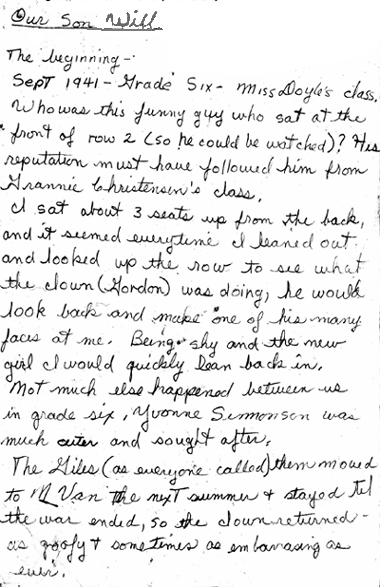 Our Son Will
The beginning -
Sept 1941 - Grade Six - Miss Doyle's class.
Who was this funny guy who sat at the
front of row 2 (so he could be watched)? His
reputation must have followed him from
Grannie Christensen's class.
I sat about 3 seats up from the back,
and it seemed everytime I leaned out
and looked up the row to see what
the clown (Gordon) was doing, he would
look back and make one of his many
faces at me. Being shy and the new
girl I would quickly lean back in.
Not much else happened between us
in grade six, Yvonne Simonson was
much cuter and sought after.
The Giles (as everyone called) them moved
to N Van the next summer & stayed til
the war ended, so the clown returned -
as goofy & sometimes as embarrasing as
ever.